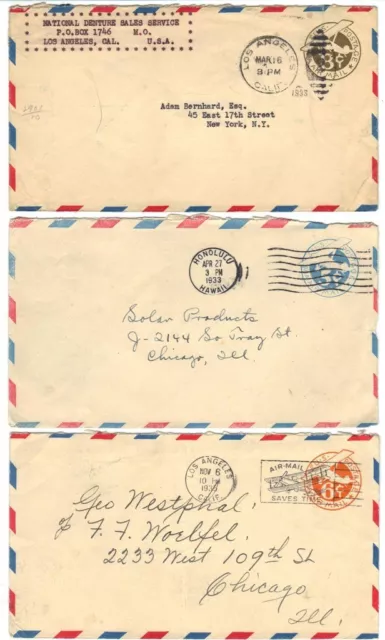 NATIONAL DENTURE SALES SERVICE
P.O.BOX 1746 M.O.
LOS ANGELES, CAL. U.S.A.
LOS ANGELES
MAR 16
8 PM
CALIF.
1933
POSTAGE
3¢
AIR MAIL
Adam Bernhard, Esq.
45 East 17th Street
New York, N.Y.
HONOLULU
APR 27
3 PM
1933
HAWAII
Solar Products
J-2144 So, Troy St.
Chicago, Ill.
LOS ANGELES
NOV 6
10
CALIF.
AIR-MAIL
SAVES TIME
6¢
Geo Westphal,
℅ F. F. Woelfel
2233 West 109th St
Chicago
Ill.